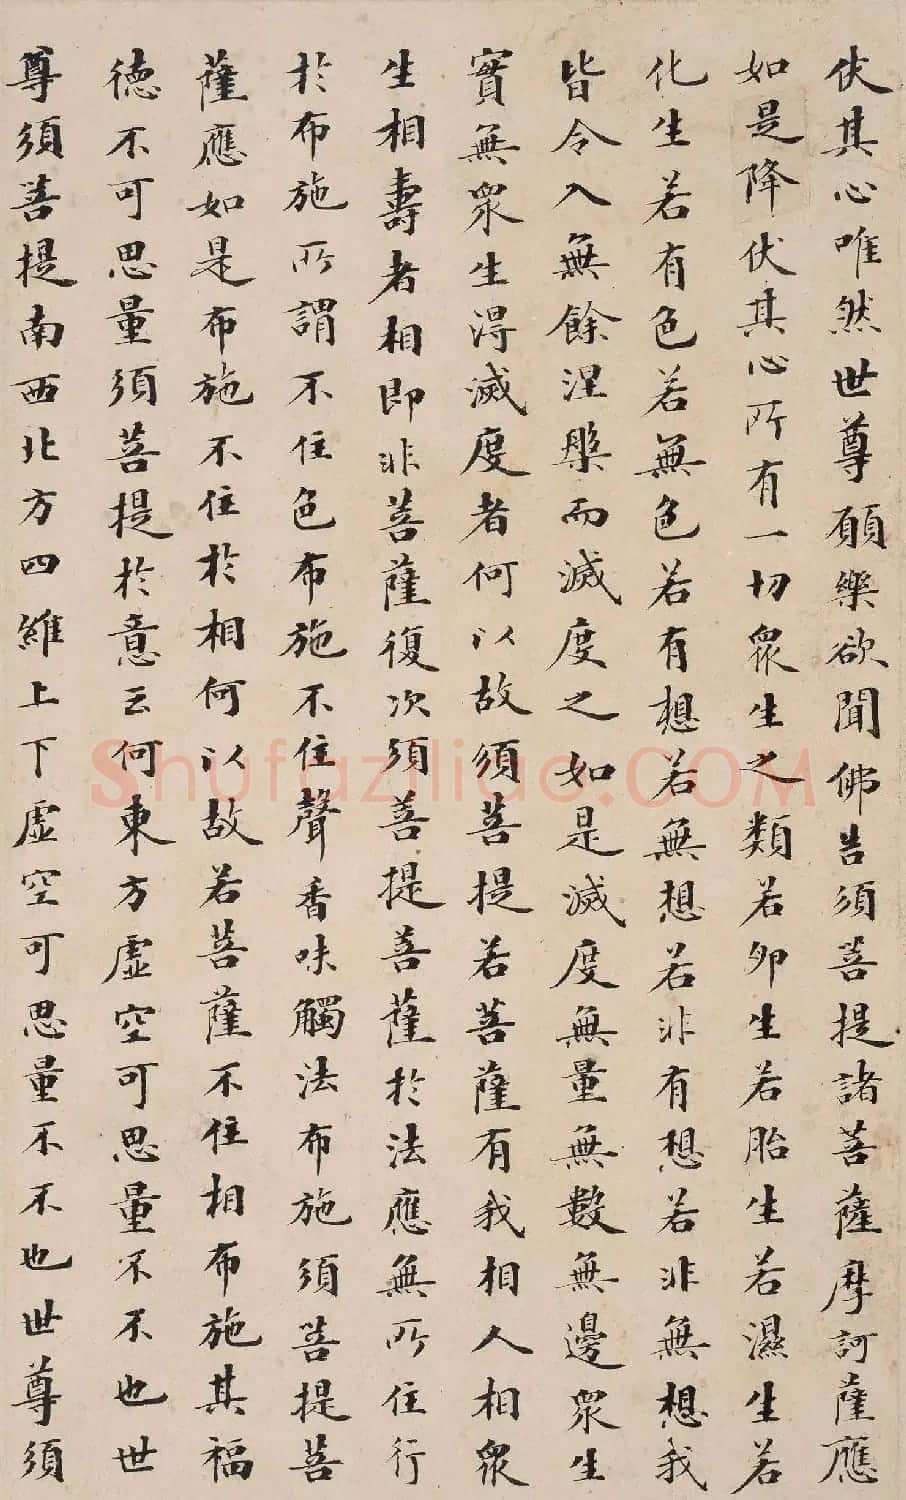 伏其心唯然世尊願樂欲聞佛告須菩提諸菩薩摩訶薩應
如是降伏其心所有一切眾生之類若卵生若胎生若濕生若
化生若有色若無色若有想若無想若非有想若非無想我
皆令入無餘涅槃而滅度之如是滅度無量無數無邊眾生
實無眾生得滅度者何以故須菩提若菩薩有我相人相眾
生相壽者相即非菩薩復次須菩提菩薩於法應無所住行
於布施所謂不住色布施不住聲香味觸法布施須菩提菩
薩應如是布施不住於相何以故若菩薩不住相布施其福
德不可思量須菩提於意云何東方虛空可思量不不也世
尊須菩提南西北方四維上下虛空可思量不不也世尊須
Shufaziliao.COM